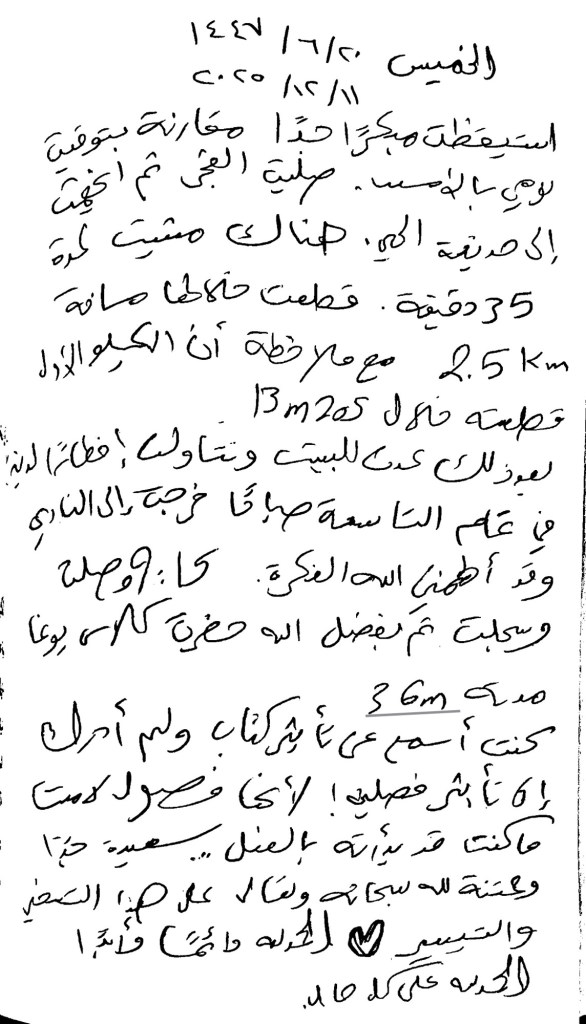 الخميس ٢٠/٦/١٤٤٧
١١/١٢/٢٠٢٥
استيقظت مبكرًا جدًا مقارنة بتوقيت
يومي بالأمس. صليت الفجر ثم اتجهت
إلى حديقة الحي. هناك مشيت لمدة
35 دقيقة. قطعت خلالها مسافة
2.5 km مع ملاحظة أن الكيلو الأول
قطعته خلال 13m 20s
بعد ذلك عدت للبيت وتناولت إفطارًا لذيذًا
في تمام التاسعة صباحًا خرجت إلى النادي
وقد ألهمني الله الفكرة. وصلت
وسجلت ثم بفضل الله حضرت كلاس يوغا
مدته 36m
كنت أسمع عن تأثير كتاب ولم أدرك
إلا تأثير فصلين! لأنها فصول لامست
ما كنت قد بدأته بالفعل... سعيدة جدًا
وممتنة لله سبحانه وتعالى على هذا التسخير
والتيسير ♥ الحمدلله دائمًا وأبدًا
الحمدلله على كل حال.